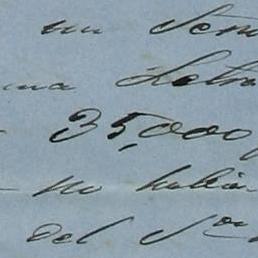 un
una Letra
35,000
no habia
del Sor